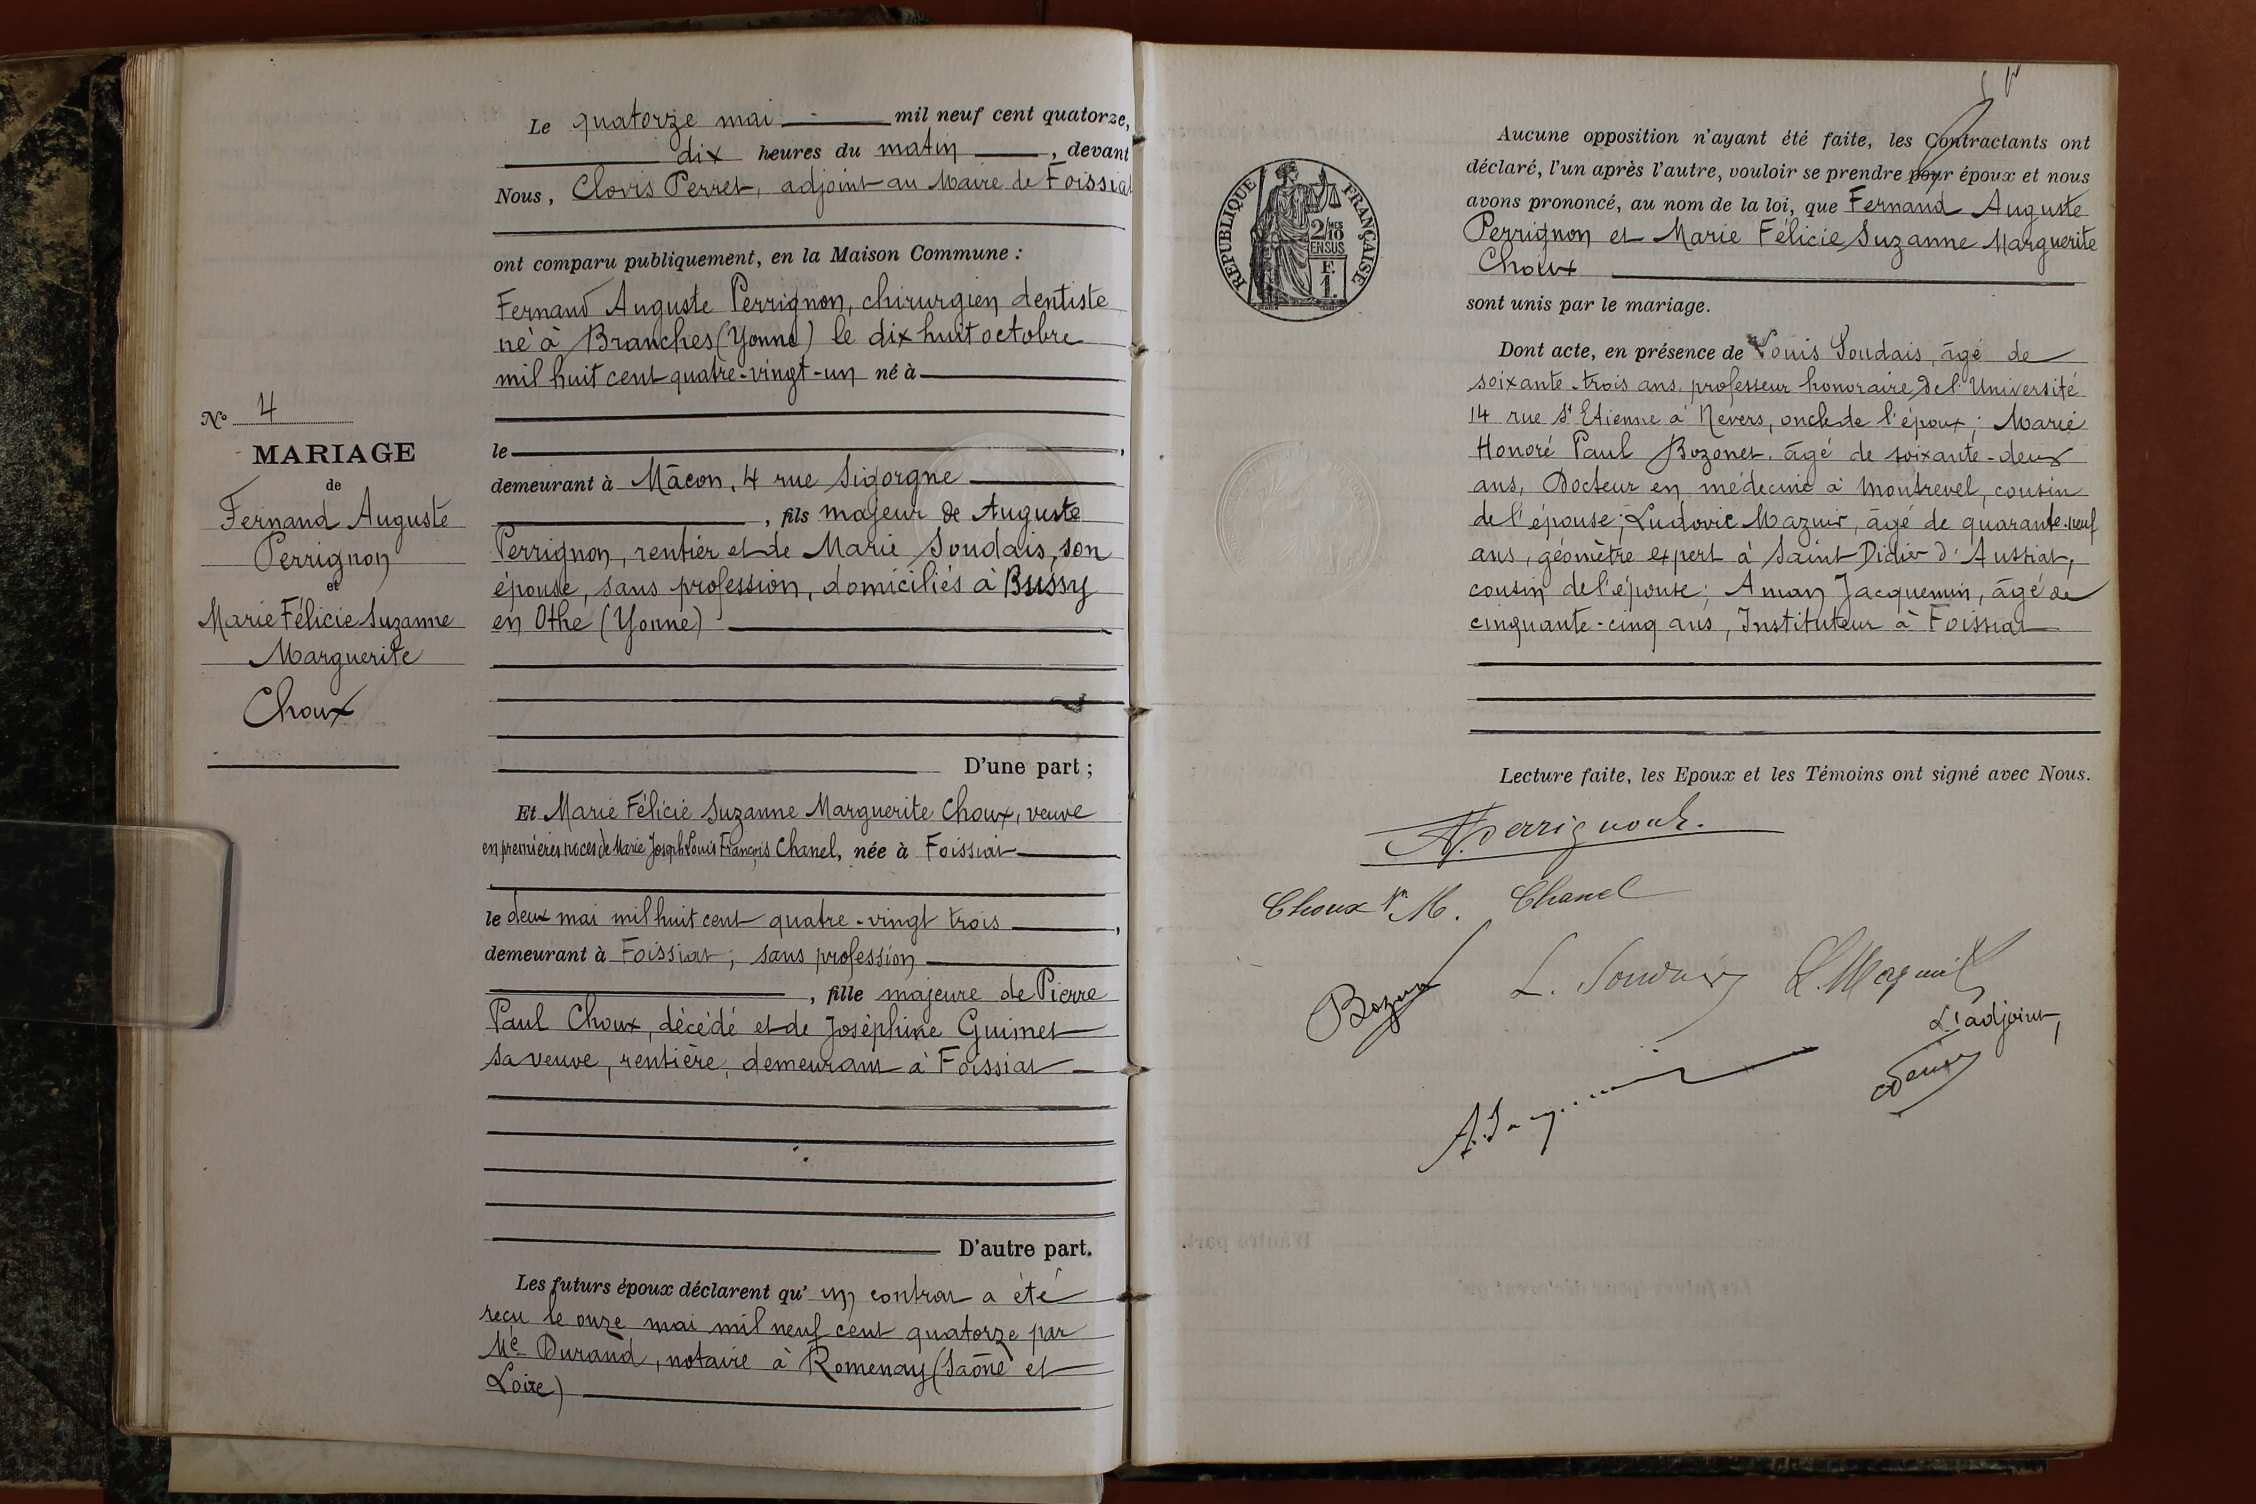 Le quatorze mai mil neuf cent quatorze,
dix heures du matin, devant
Nous, Clovis Perret, adjoint au Maire de Foissiat
ont comparu publiquement, en la Maison Commune :
Fernand Auguste Perrignon, chirurgien dentiste
né à Branches (Yonne) le dix huit octobre
mil huit cent quatre-vingt-un né à
le
demeurant à Mâcon, 4 rue Sigorgne
, fils majeur de Auguste
Perrignon, rentier et de Marie Soudais, son
épouse, sans profession, domiciliés à Bussy
en Othe (Yonne)
D'une part ;
Nº 4
MARIAGE
de
Fernand Auguste
Perrignon
et
Marie Félicie Suzanne
Marguerite
Choux
Et Marie Félicie Suzanne Marguerite Choux, veuve
en premières noces de Marie Joseph Louis François Chanel, née à Foissiat
le deux mai mil huit cent quatre-vingt trois,
demeurant à Foissiat, sans profession
, fille majeure de Pierre
Paul Choux, décédé et de Joséphine Guimet
sa veuve, rentière, demeurant à Foissiat
D'autre part.
Les futurs époux déclarent qu'un contrat a été
reçu le onze mai mil neuf cent quatorze par
Me Durand, notaire à Romenay (Saône et
Loire)
RÉPUBLIQUE FRANÇAISE
2/10
EN SUS
F.
1.
Aucune opposition n'ayant été faite, les Contractants ont
déclaré, l'un après l'autre, vouloir se prendre pour époux et nous
avons prononcé, au nom de la loi, que Fernand Auguste
Perrignon et Marie Félicie Suzanne Marguerite
Choux
sont unis par le mariage.
Dont acte, en présence de Louis Soudais, âgé de
soixante-trois ans, professeur honoraire de l'Université
14 rue St Etienne à Nevers, oncle de l'époux ; Marie
Honoré Paul Bozonet, âgé de soixante-deux
ans, Docteur en médecine à Montrevel, cousin
de l'épouse ; Ludovic Mazuir, âgé de quarante-neuf
ans, géomètre expert à Saint Didier d'Aussiat,
cousin de l'épouse ; Aman Jacquemin, âgé de
cinquante-cinq ans, Instituteur à Foissiat
Lecture faite, les Epoux et les Témoins ont signé avec Nous.
Choux Vve M. Chanel
L. Soudais L. Mazuir
L'adjoint,